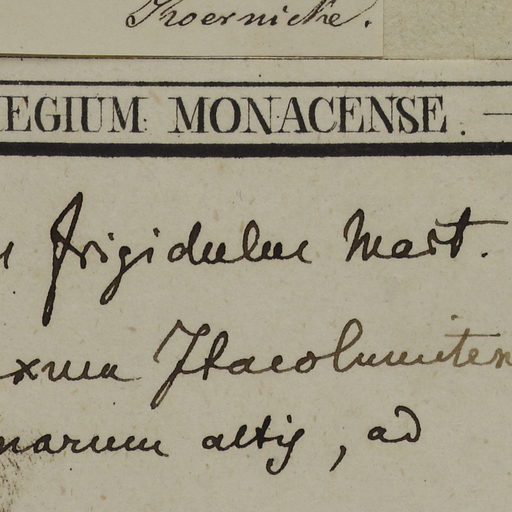 Koernicke.
EGIUM MONACENSE.
frigidulus Mart.
Itacolumiten
marum altis, ad